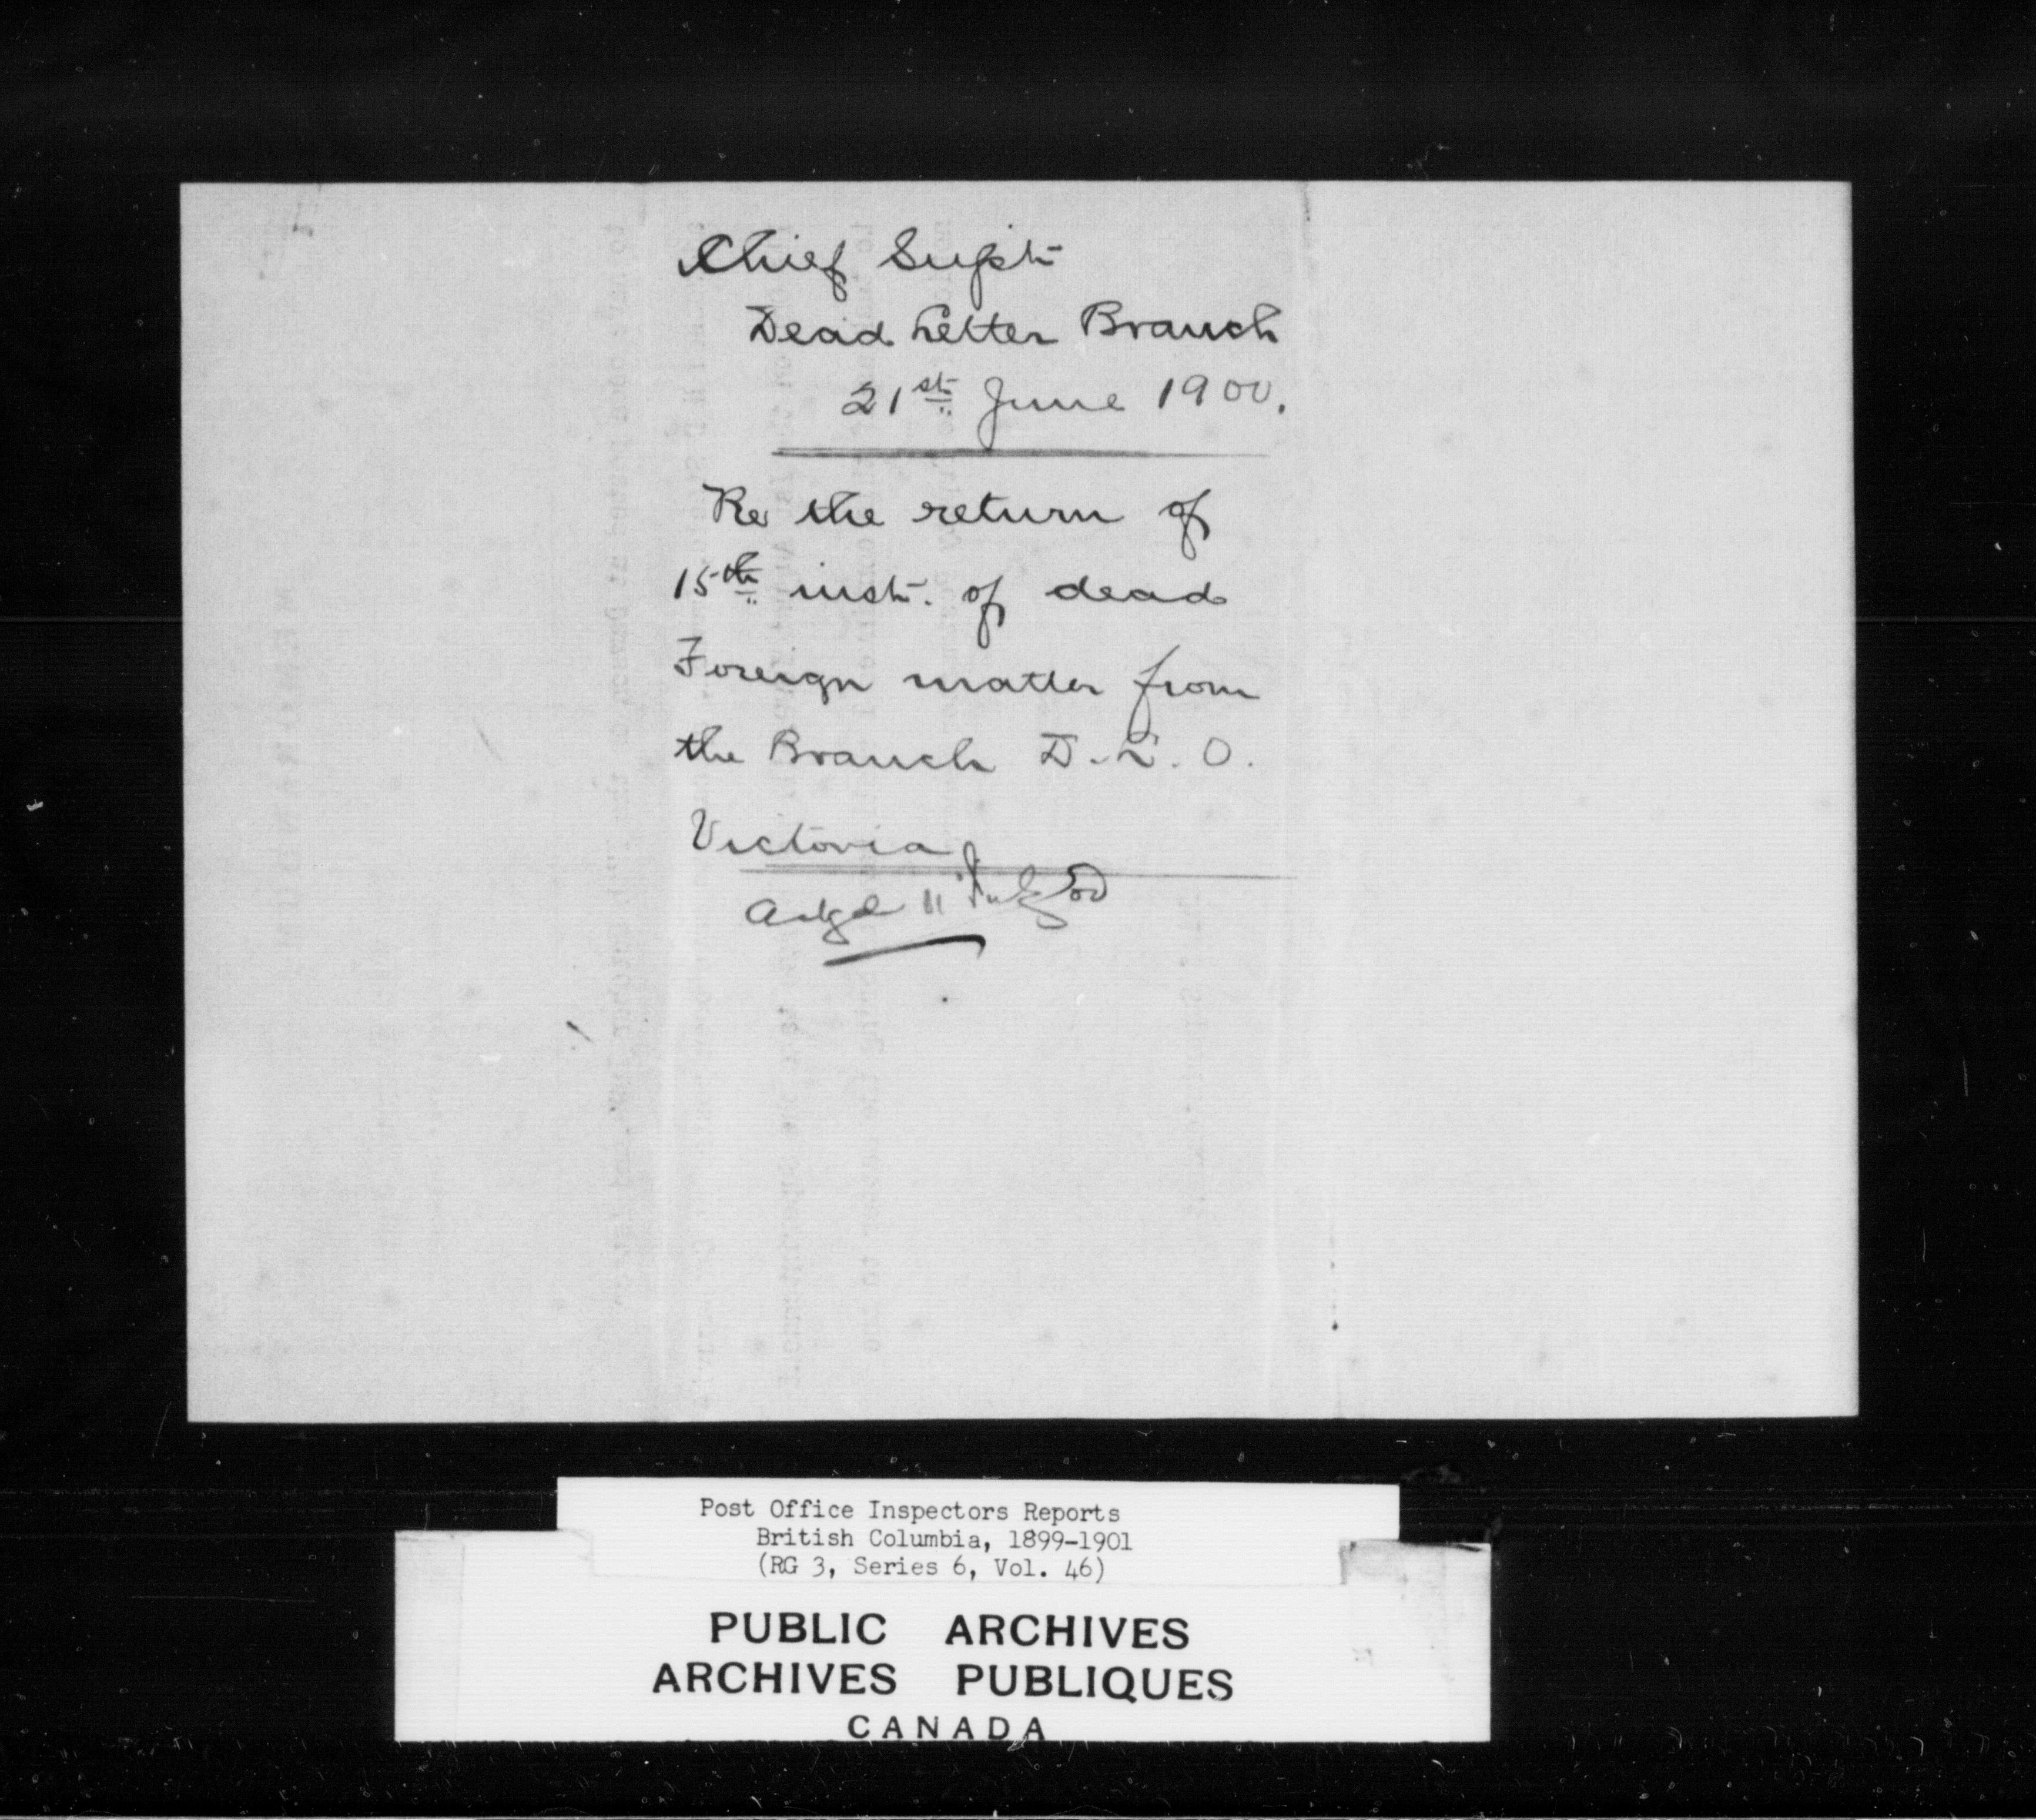 Chief Supt
Dead Letter Branch
21st June 1900.
Re the return of
15th inst. of dead
Foreign matter from
the Branch D.L.O.
Victoria
Post Office Inspectors Reports
British Columbia, 1899-1901
(RG 3, Series 6, Vol. 46)
PUBLIC ARCHIVES
ARCHIVES PUBLIQUES
CANADA